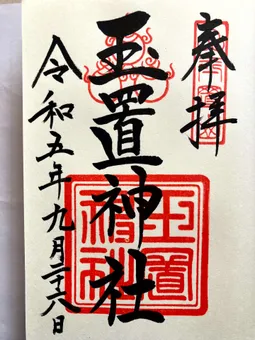 奉拝
玉置神社
令和五年九月二十六日
玉置神社